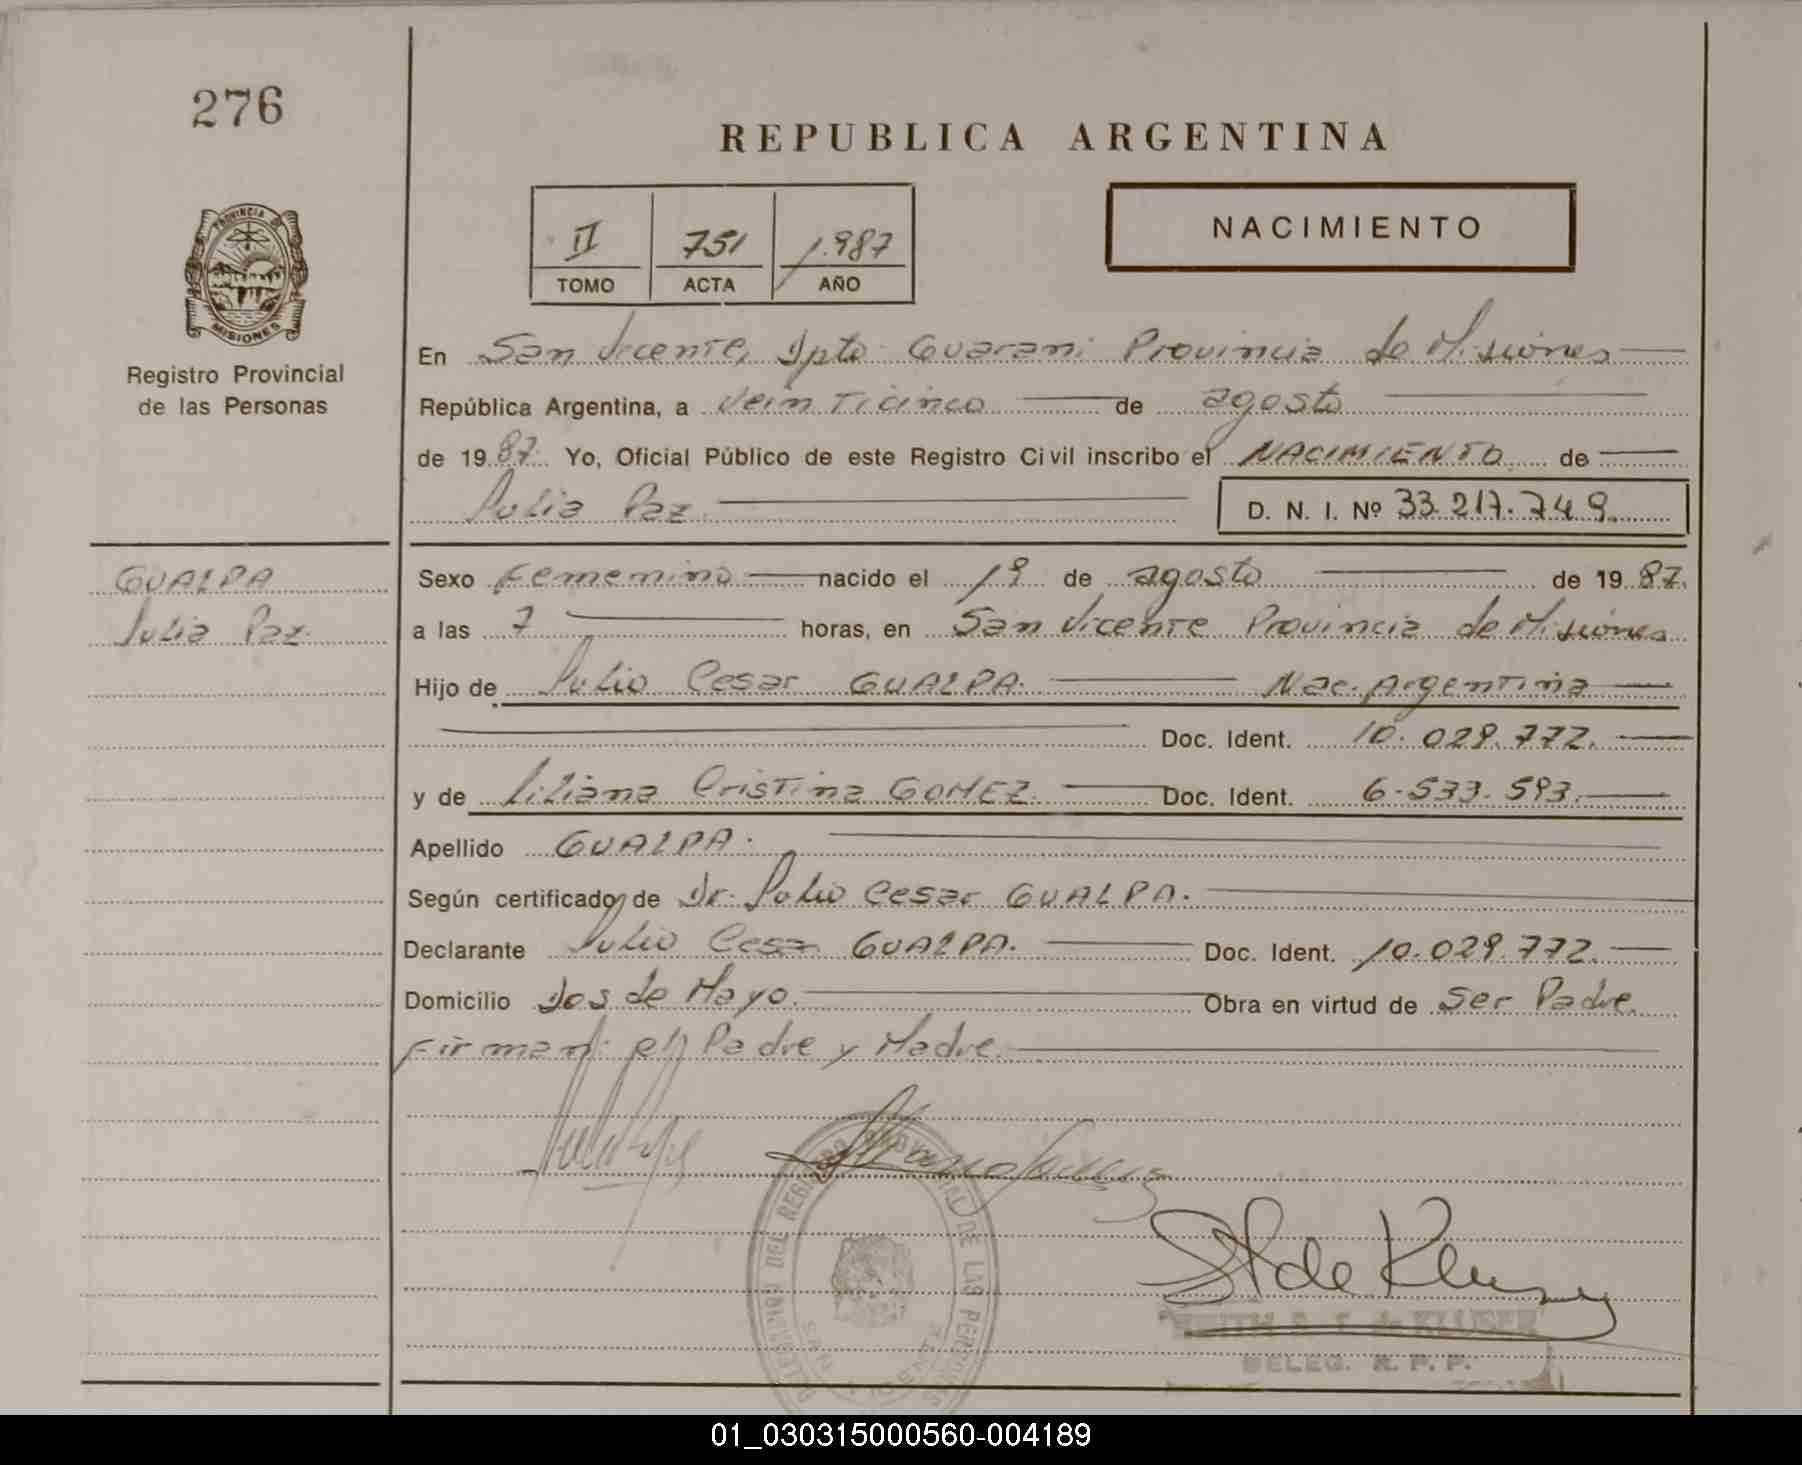 276
REPUBLICA ARGENTINA
II 751 1.987
TOMO ACTA AÑO
NACIMIENTO
PROVINCIA DE
MISIONES
Registro Provincial
de las Personas
En San Vicente, Dpto Guarani Provincia de Misiones
República Argentina, a Veinticinco de agosto
de 19 87. Yo, Oficial Público de este Registro Civil inscribo el NACIMIENTO de
Julia Paz D. N. I. Nº 33.217.749.
GUALPA
Julia Paz.
Sexo Femenino nacido el 1º de agosto de 19 87.
a las 7 horas, en San Vicente Provincia de Misiones
Hijo de Julio Cesar GUALPA. Nac. Argentina
Doc. Ident. 10.029.772.
y de Liliana Cristina GOMEZ. Doc. Ident. 6.533.593.
Apellido GUALPA.
Según certificado de Dr. Julio Cesar GUALPA.
Declarante Julio Cesar GUALPA. Doc. Ident. 10.029.772.
Domicilio Dos de Mayo. Obra en virtud de Ser Padre.
Firman: el Padre y Madre.
DEL REGISTRO PROVINCIAL DE LAS PERSONAS
SAN VICENTE
de KLUSER
DELEG. R. P. P.
01_030315000560-004189